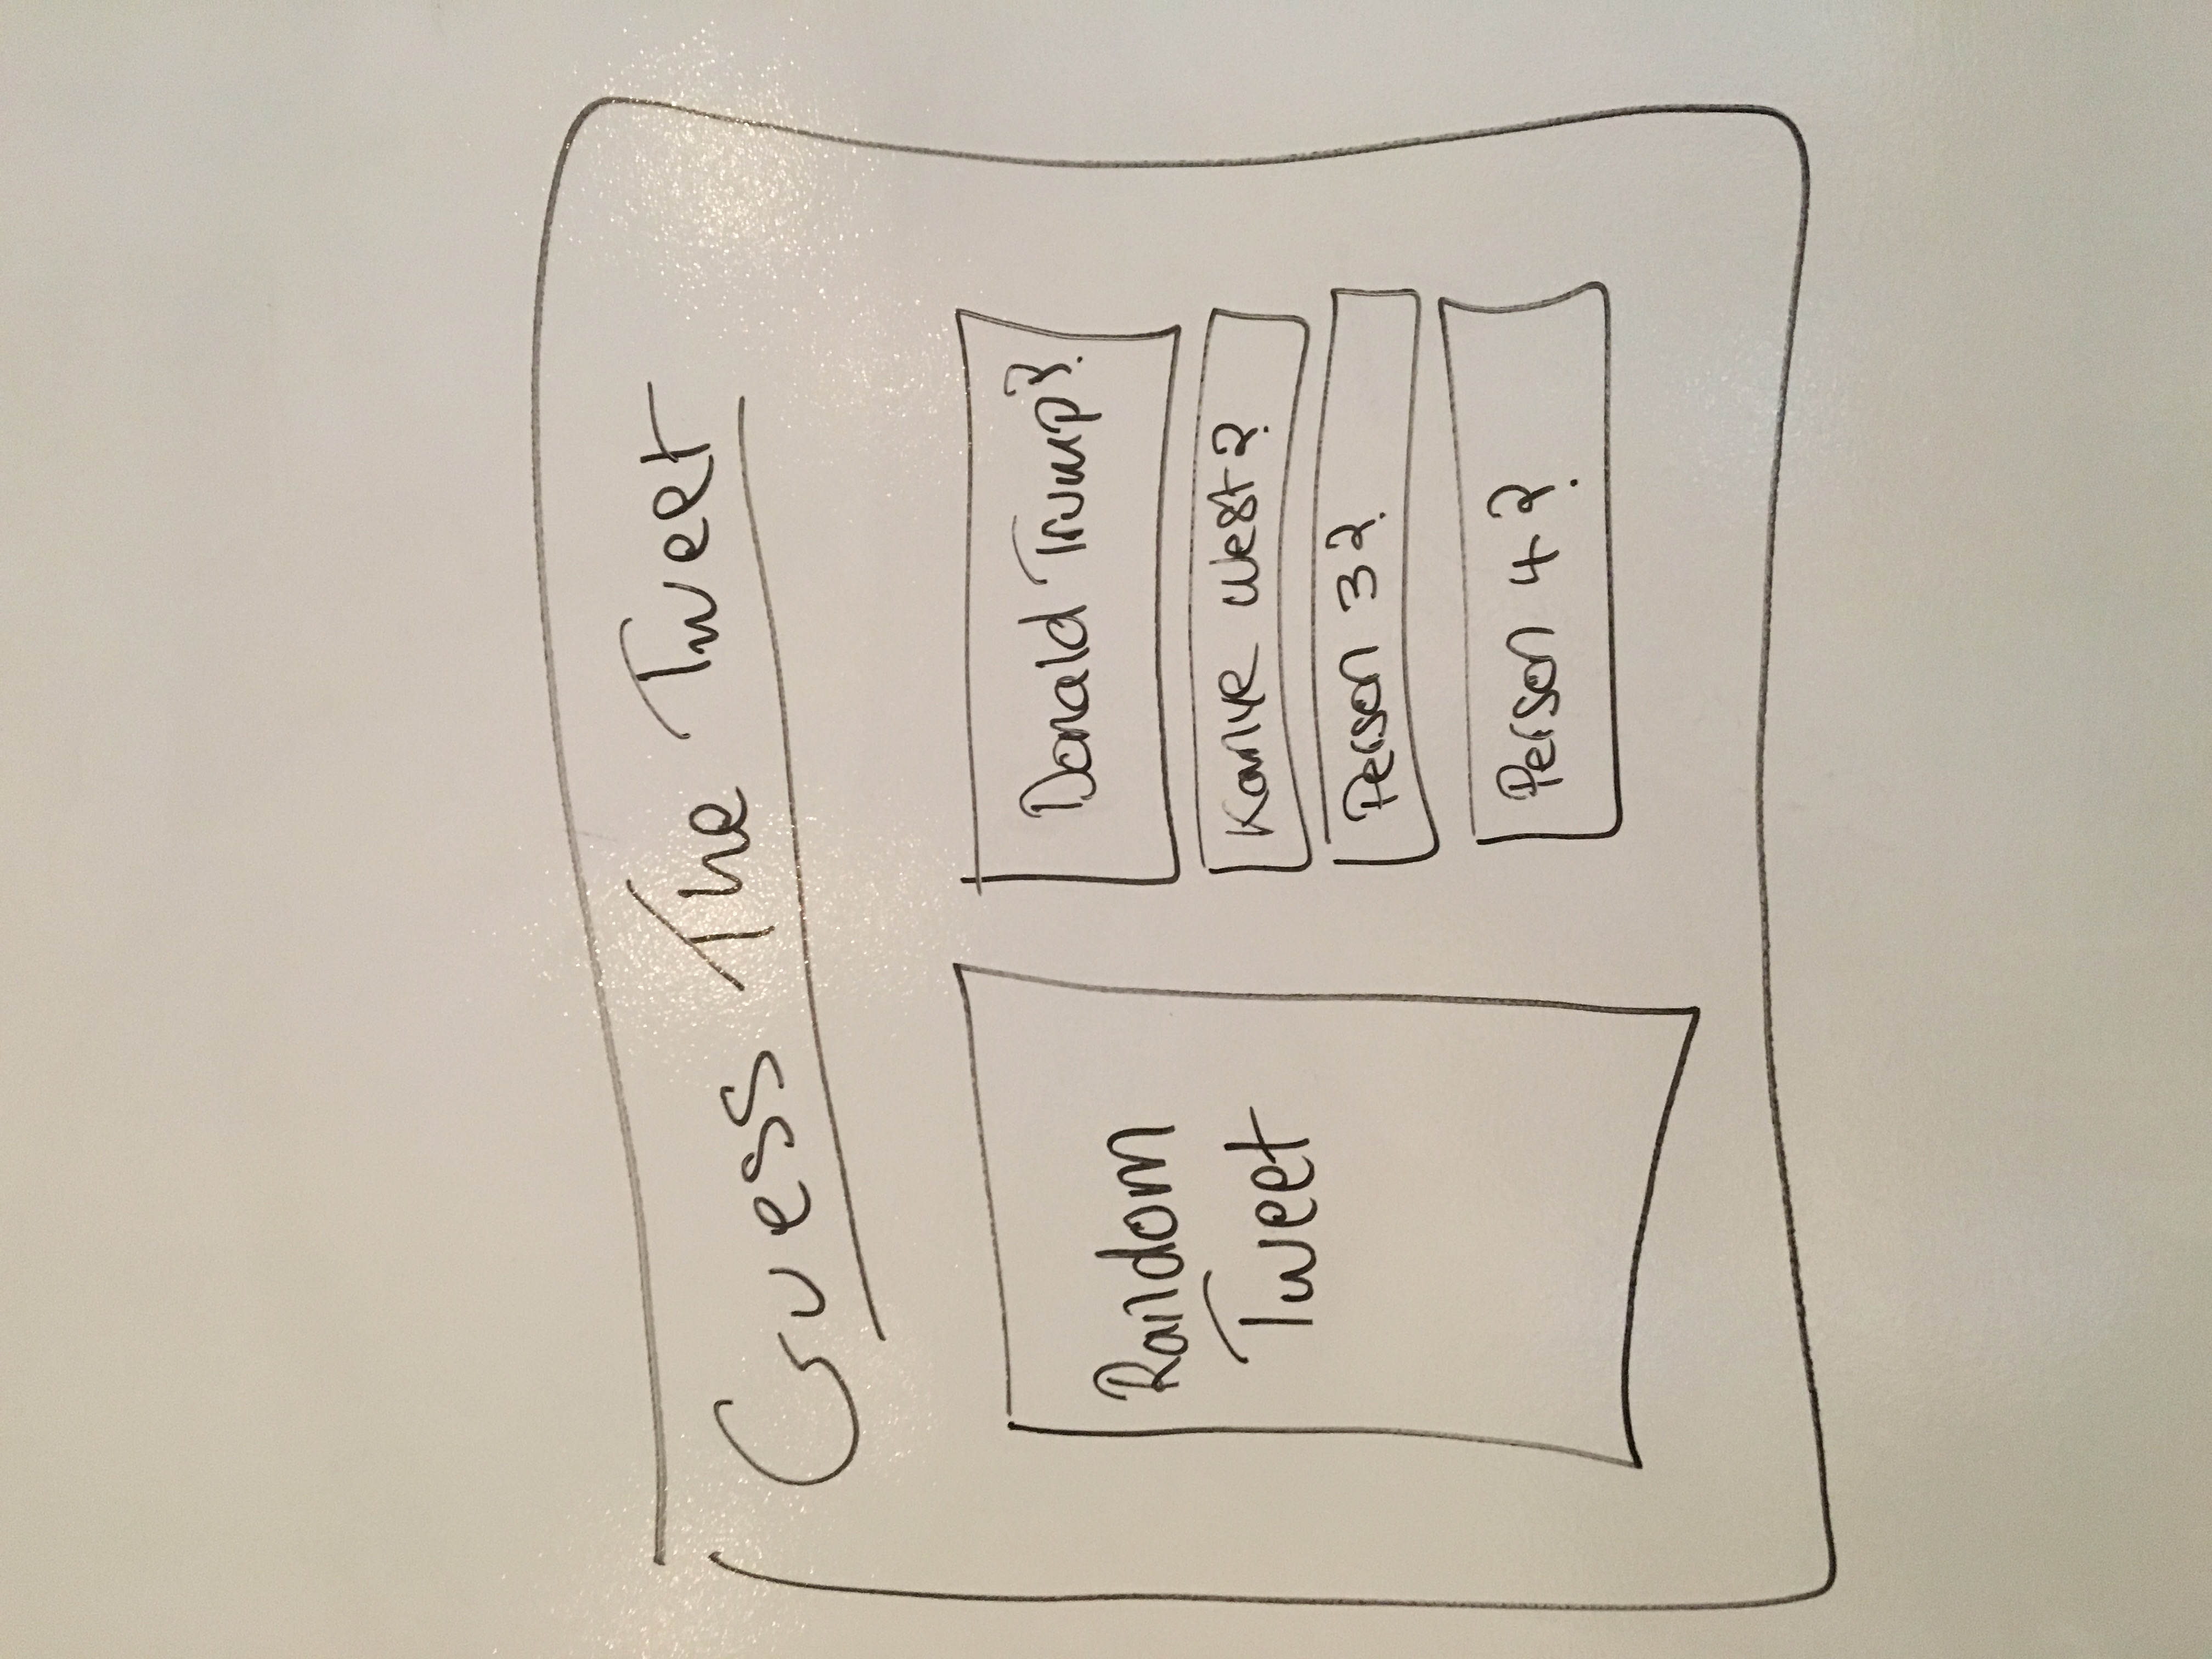 Guess The Tweet
Random
Tweet
Donald Trump?
Kanye West?
Person 3?
Person 4?